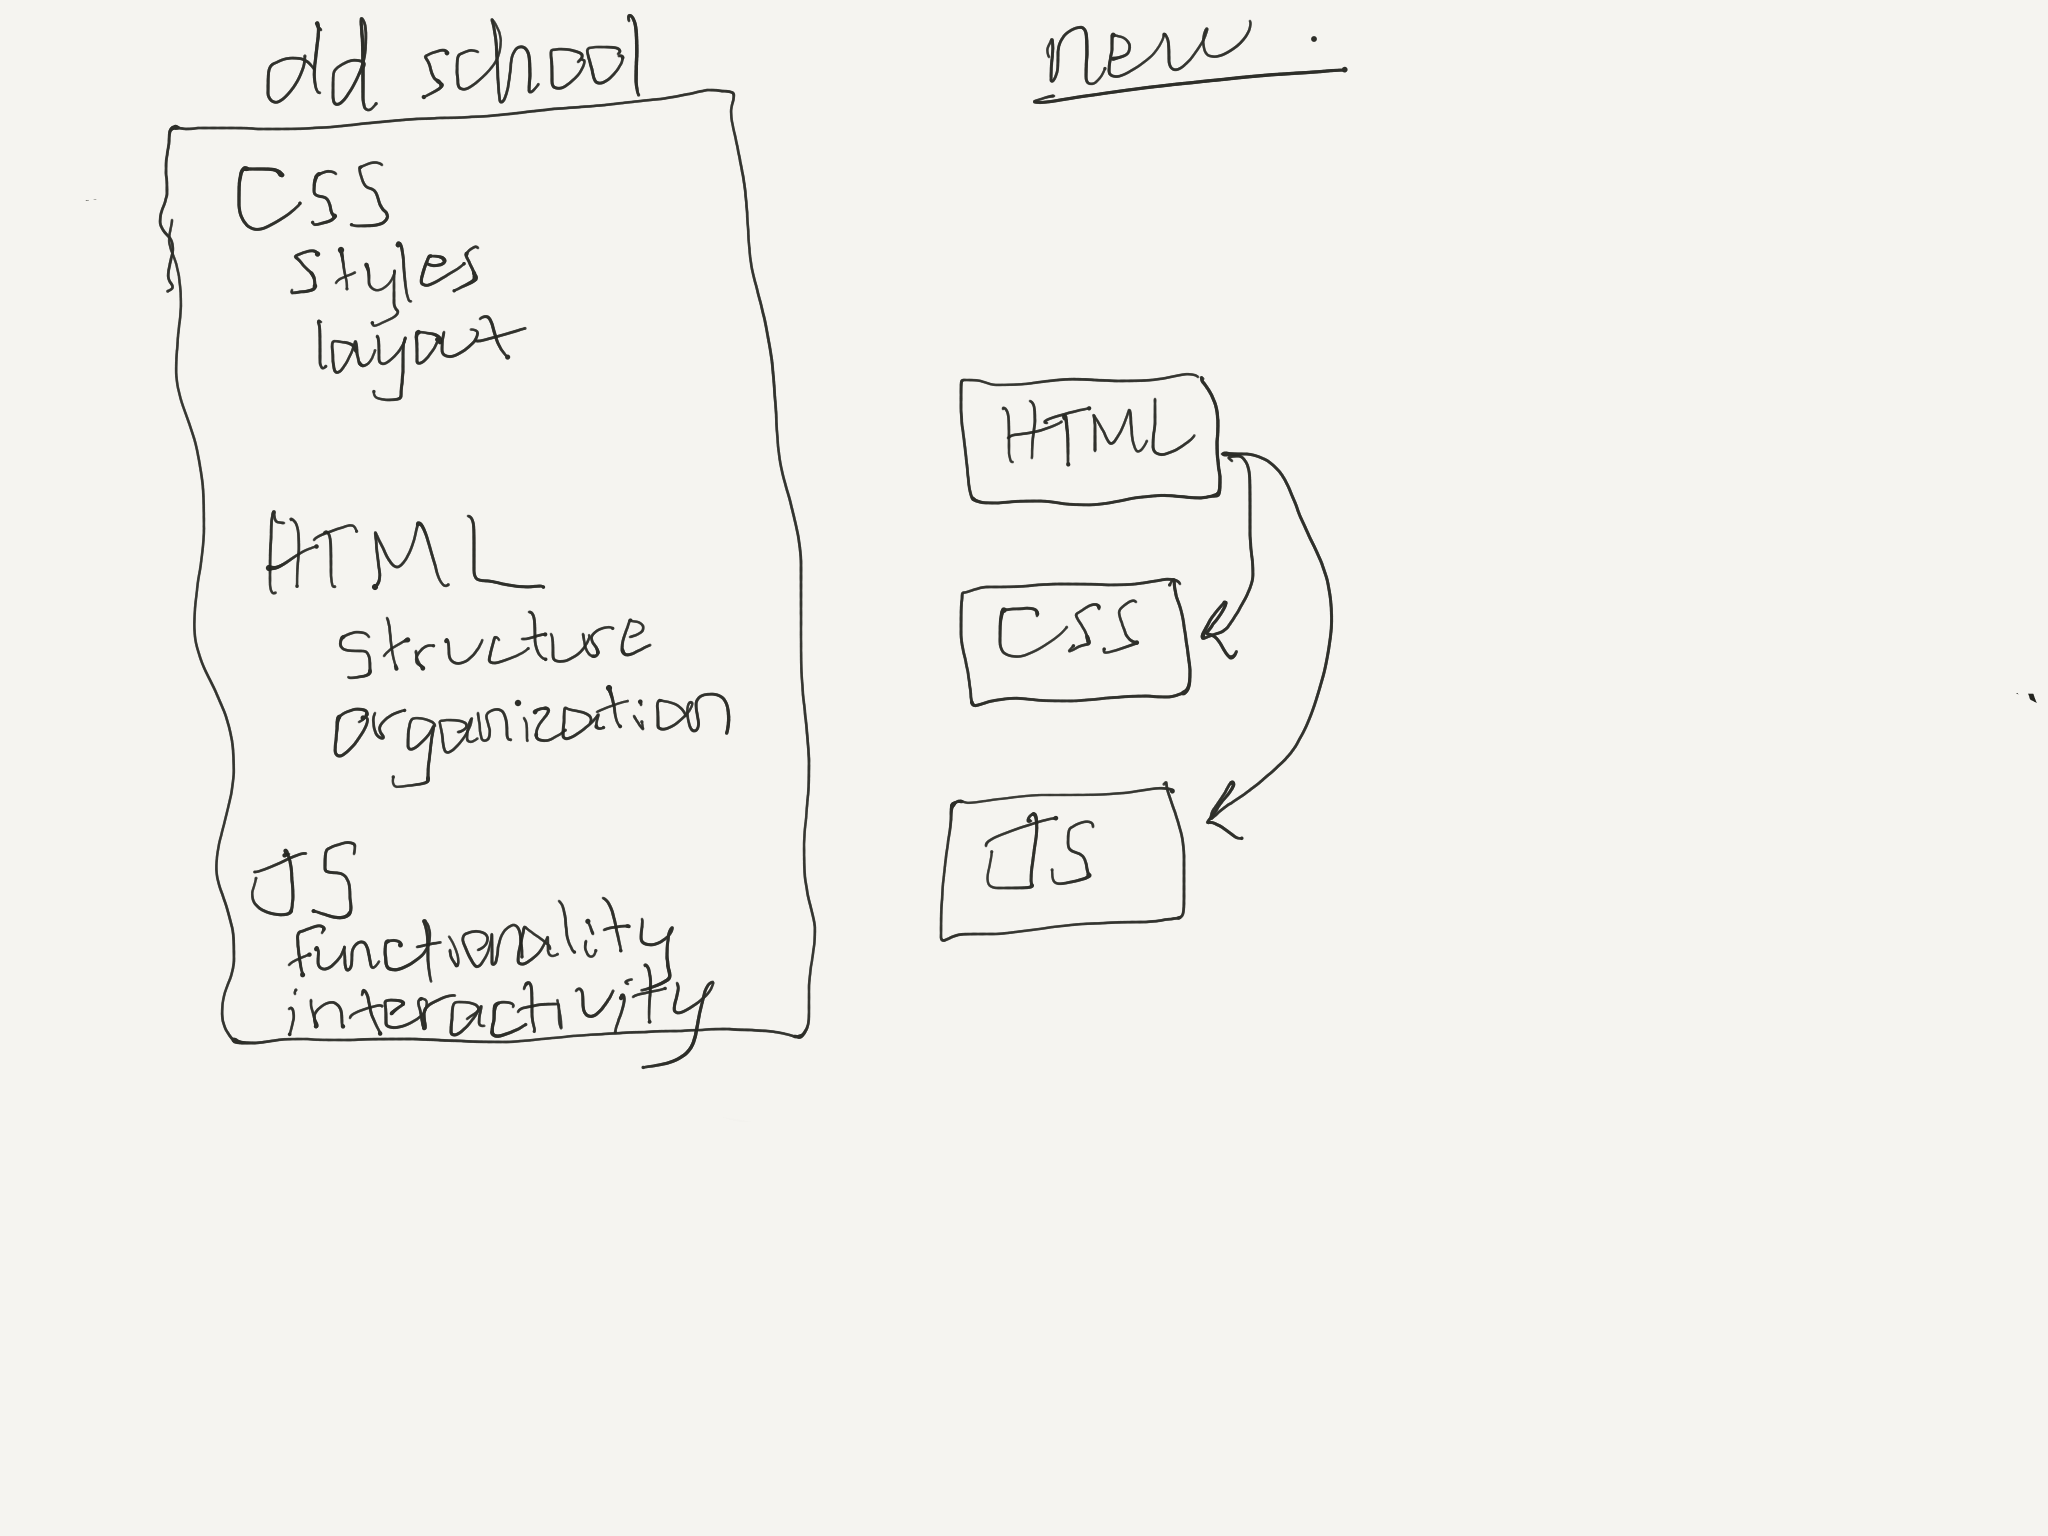 old school
CSS
styles
layout
HTML
structure
organization
JS
functionality
interactivity
new
HTML
CSS
JS